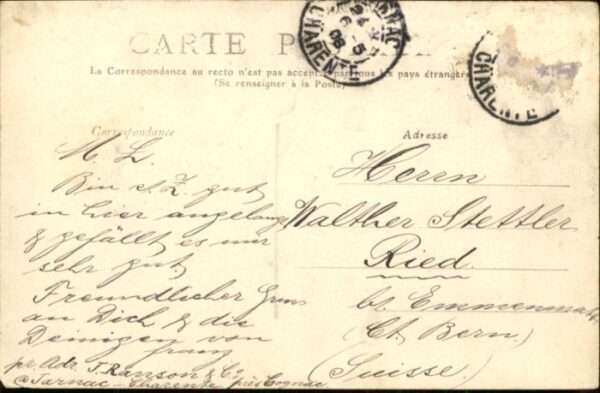 CARTE P
La Correspondance au recto n'est pas acceptée par tous les pays étrangers
(Se renseigner à la Poste)
JARNAC
24
6 - 5
08
CHARENTE
CHARENTE
Correspondance
Adresse
M. L.
Bin s. Z. gut
in hier angelangt
& gefällt es mir
sehr gut.
Freundlicher Gruss
an Dich & die
Deinigen von
Franz
pr. Adr. J. Ranson & Co
@ Jarnac - Charente près Cognac
Herrn
Walther Stettler
Ried
bei Emmenmatt
(Ct. Bern)
(Suisse)